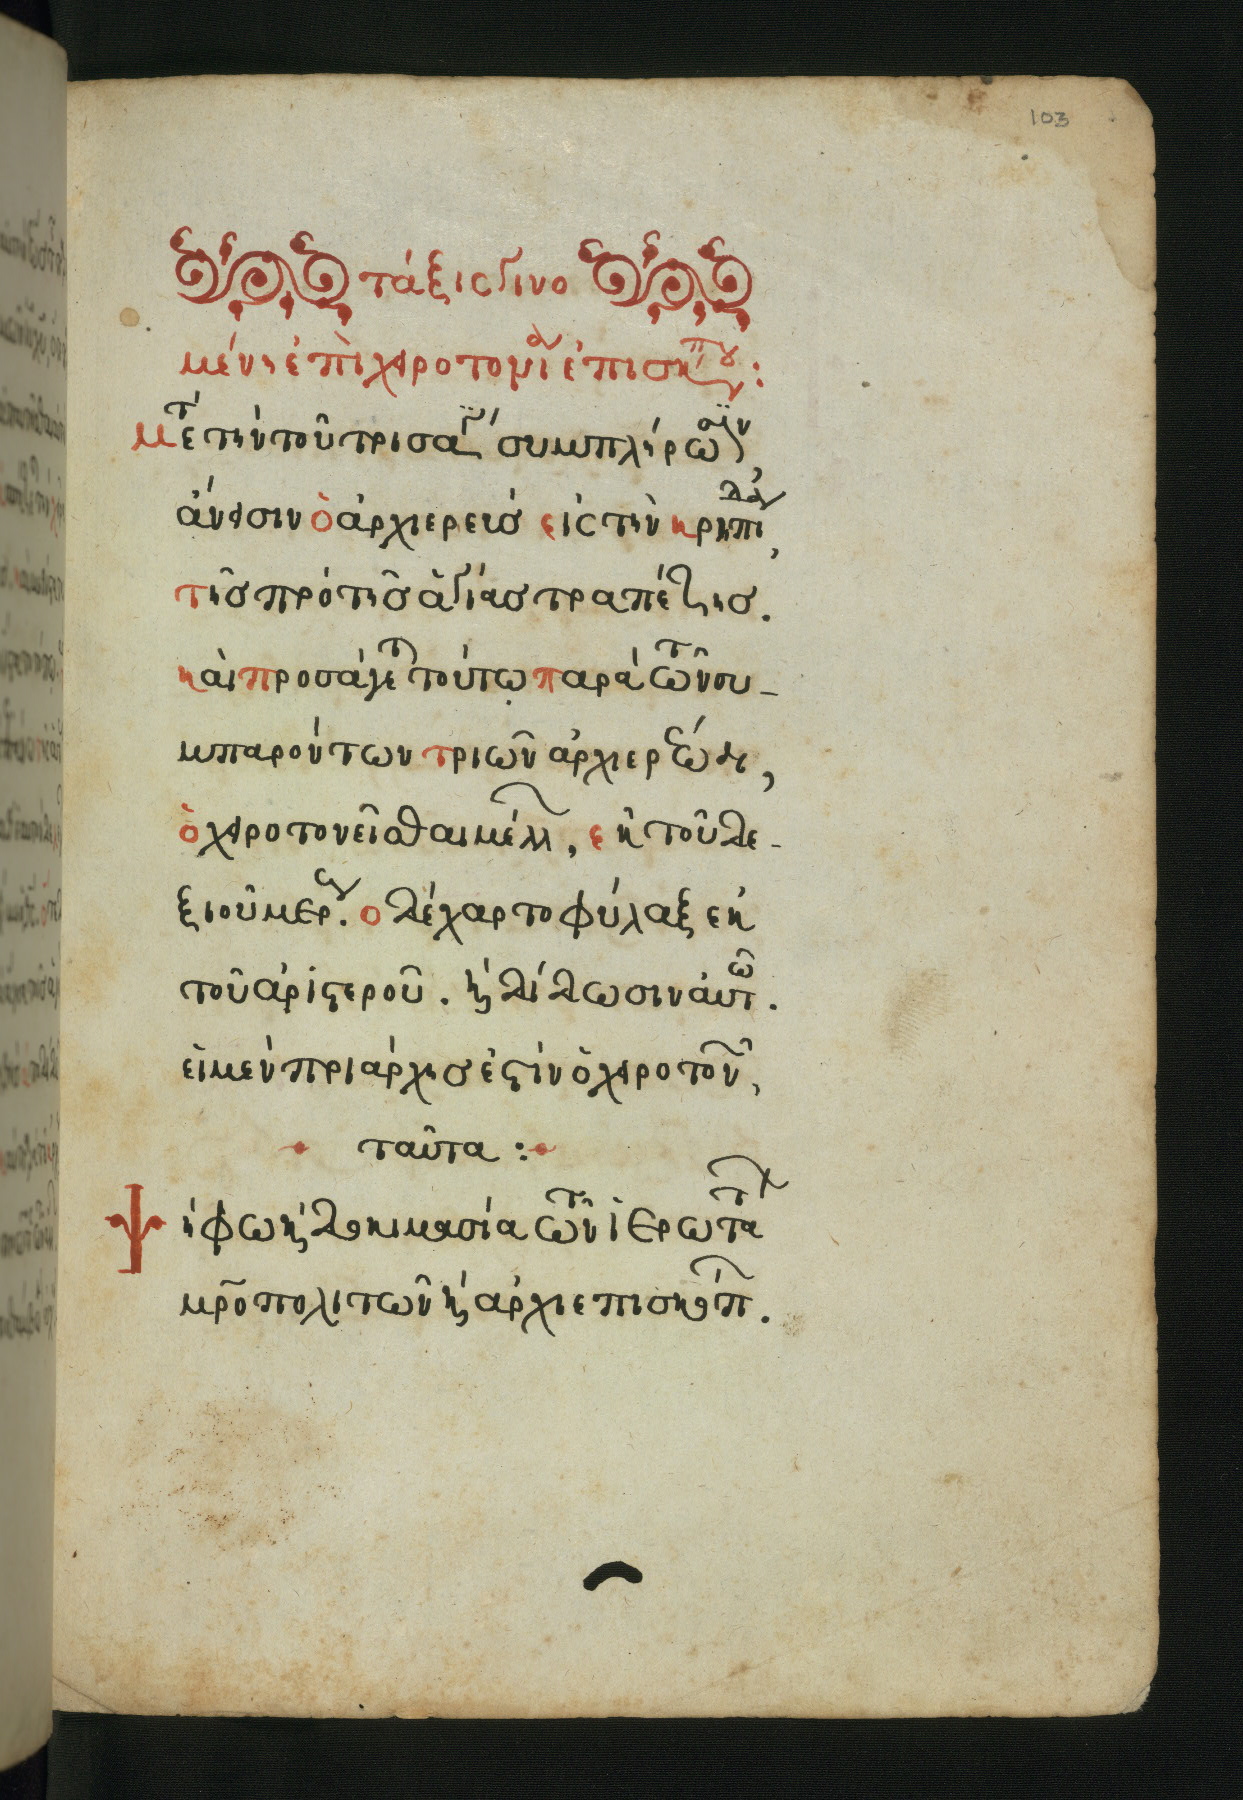 103
τάξις γινο
μένη ἐπὶ χειροτονίᾳ ἐπισκόπου:
Μετὰ τὴν τοῦ τρισαγίου συμπλήρωσιν,
ἄνεισιν ὁ ἀρχιερεὺσ εἰς τὴν κρηπίδα,
τῆσ πρὸ τῆσ ἁγίασ τραπέζησ.
καὶ προσάγεται τούτω παρὰ τῶν συ-
μπαρόντων τριῶν ἀρχιερέων,
ὁ χειροτονεῖσθαι μέλλων, ἐκ τοῦ δε-
ξιοῦ μέρους. ὁ δὲ χαρτοφύλαξ ἐκ
τοῦ ἀριστεροῦ. καὶ δίδωσιν αὐτῶ.
εἰ μὲν πριάρχησ ἐστὶν ὁ χειροτονῶν,
ταῦτα :
Ψήφω καὶ δοκιμασία τῶν ἱερωτάτων
μροπολιτῶν καὶ ἀρχιεπισκόπων.